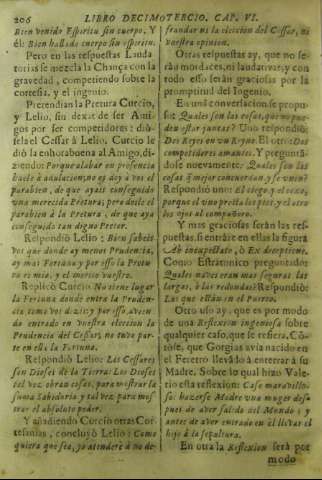 206 LIBRO DECIMOTERCIO. CAP. VI.
Bien venido Espiritu sin cuerpo. Y
èl: Bien hallado cuerpo sin espiritu.
Pero en las respuestas Lauda-
torias se mezcla la Chança con la
gravedad, compitiendo sobre la
cortesia, y el ingenio.
Pretendian la Pretura Curcio,
y Lelio, sin dexar de ser Ami-
gos por ser competidores: diò-
sela el Cessar à Lelio. Curcio le
diò la enhorabuena al Amigo, di-
ziendo: Porque alabar en presencia
huele à adulacion, no os doy à vos el
parabien, de que ayais conseguido
una merecida Pretura; pero doile el
parabien à la Pretura, de que aya
conseguido tan digno Pretor.
Respondiò Lelio: Bien sabeis
vos que donde ay menor Prudencia,
ay mas Fortuna; y por esso la Pretu-
ra es mia, y el merito vuestro.
Replicò Curcio: No tiene lugar
la Fortuna donde entra la Pruden-
cia como vos dezis: y por esso, avien-
do entrado en vuestra eleccion la
Prudencia del Cessar, no tuvo par-
te en ella la Fortuna.
Respondiò Lelio: Los Cessares
son Dioses de la Tierra: Los Dioses
tal vez obran cosas, para mostrar la
suma Sabiduria, y tal vez para mos-
trar el absoluto poder.
Y añadiendo Curcio otras Cor-
tesanias, concluyò Lelio: Como
quiera que sea, yo atenderè à no de-
fraudar ni la eleccion del Cessar, ni
vuestra opinion.
Otras respuestas ay, que no se-
ràn mordaces, ni laudativas; y con
todo esso seràn graciosas por la
promptitud del Ingenio.
En una conversacion se propu-
so: Quales son las cosas, que no pue-
den estar juntas? Uno respondiò:
Dos Reyes en un Reyno. El otro: Dos
competidores amantes. Y preguntã-
dose nuevamente: Quales son las
cosas q̃ mejor concuerdan, y se unen?
Respondiò uno: El ciego, y el coxo,
porque el uno presta los pies, y el otro
los ojos al compañero.
Y mas graciosas seràn las res-
puestas, si entràre en ellas la figura
Ab inexpectato, ò Ex deceptione.
Como Estratonico preguntado:
Quales naves eran mas seguras, las
largas, ò las redondas? Respondiò:
Las que estàn en el Puerto.
Otro uso ay, que es por modo
de una Reflexion ingeniosa sobre
qualquier caso, que se refiera. Co-
mo, que Gorgias avia nacido en
el Feretro llevãdo à enterrar à su
Madre. Sobre lo qual hizo Vale-
rio esta reflexion: Caso maravillo-
so: hazerse Madre una muger des-
pues de aver salido del Mundo; y
antes de aver entrado en èl llevar el
hijo à la sepultura.
En otra la Reflexion serà por
modo